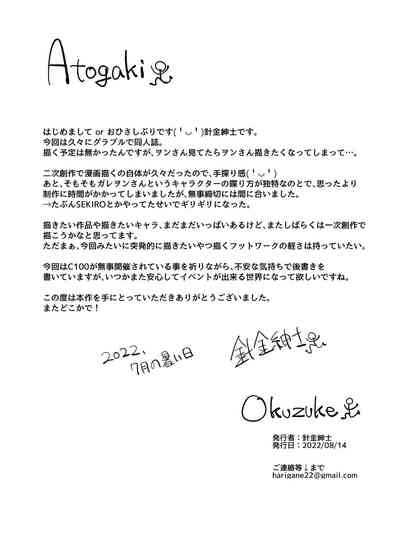 Atogaki
はじめまして or おひさしぶりです( ' ᴗ ' )針金紳士です。
今回は久々にグラブルで同人誌。
描く予定は無かったんですが、ヲンさん見てたらヲンさん描きたくなってしまって…。
二次創作で漫画描くの自体が久々だったので、手探り感( ' ᴗ ' )
あと、そもそもガレヲンさんというキャラクターの喋り方が独特なのとで、思ったより
制作に時間がかかってしまいましたが、無事締切には間に合いました。
→たぶんSEKIROとかやってたせいでギリギリになった。
描きたい作品や描きたいキャラ、まだまだいっぱいあるけど、またしばらくは一次創作で
描こうかなと思ってます。
ただまぁ、今回みたいに突発的に描きたいやつ描くフットワークの軽さは持っていたい。
今回はC100が無事開催されている事を祈りながら、不安な気持ちで後書きを
書いていますが、いつかまた安心してイベントが出来る世界になって欲しいですね。
この度は本作を手にとっていただきありがとうございました。
またどこかで！
2022,
7月の暑い日
針金紳士
Okuzuke
発行者：針金紳士
発行日：2022/08/14
ご連絡等↓まで
harigane22@gmail.com